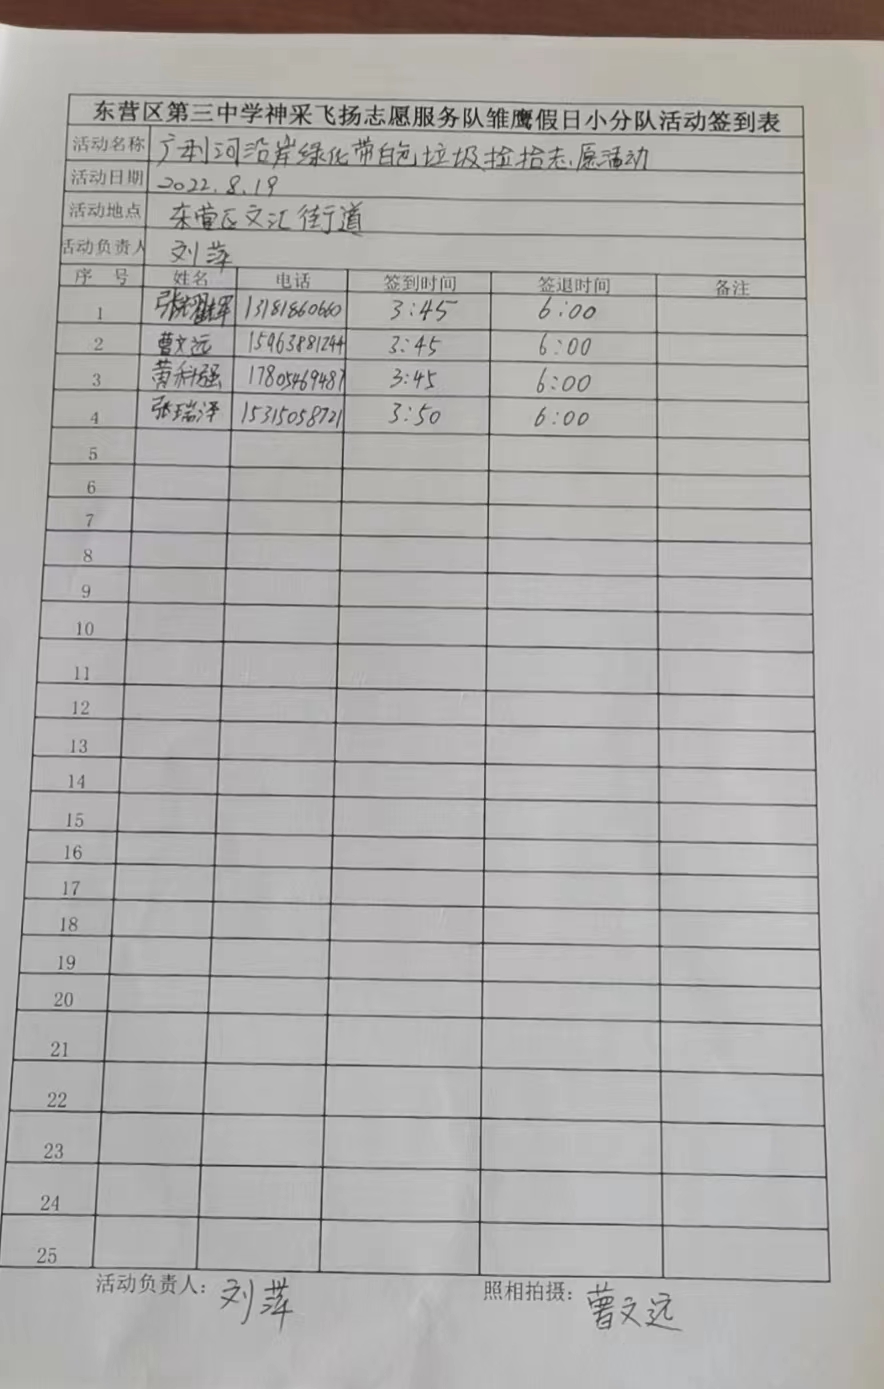 东营区第三中学神采飞扬志愿服务队雏鹰假日小分队活动签到表
活动名称 广利河沿岸绿化带白色垃圾捡拾志愿活动
活动日期 2022.8.19
活动地点 东营区文汇街道
活动负责人 刘萍
序 号 姓名 电话 签到时间 签退时间 备注
1 13181860660 3:45 6:00
2 曹文远 15963881244 3:45 6:00
3 黄科强 17805469487 3:45 6:00
4 张瑞泽 15315058721 3:50 6:00
5
6
7
8
9
10
11
12
13
14
15
16
17
18
19
20
21
22
23
24
25
活动负责人：刘萍 照相拍摄：曹文远